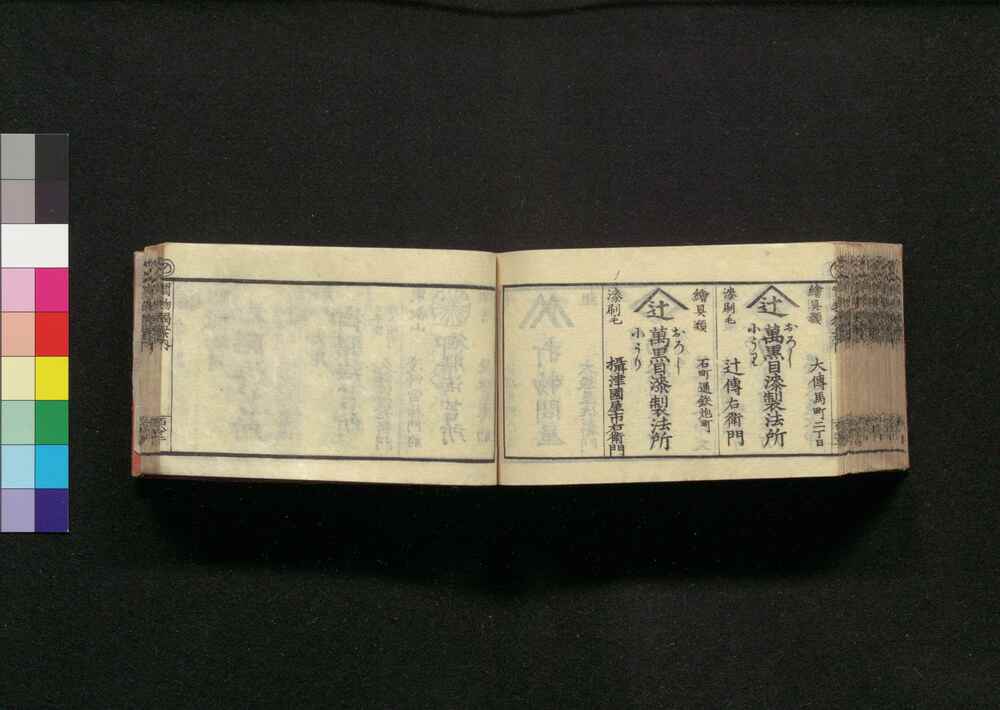 繪具類
大傳馬町二丁目
辻
おろし
萬黒目漆製法所
小うり
漆刷毛
辻傳右衞門
繪具類
石町通鉄炮町
辻
おろし
萬黒目漆製法所
小うり
漆刷毛
攝津國屋市右衞門